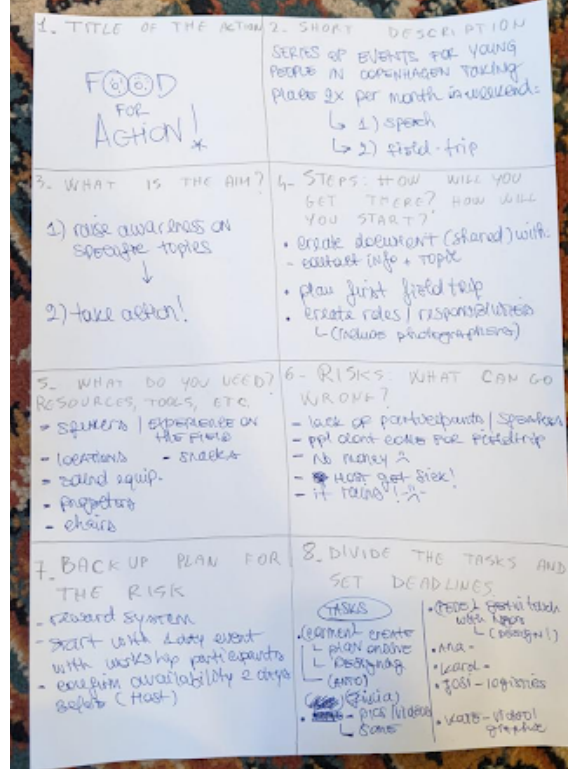 1. TITLE OF THE ACTION
FOOD
FOR
ACTION!
2. SHORT DESCRIPTION
SERIES OF EVENTS FOR YOUNG
PEOPLE IN COPENHAGEN TAKING
place 2x per month in weekend:
↳ 1) speech
↳ 2) field-trip
3. WHAT IS THE AIM?
1) raise awareness on
specific topics
↓
2) take action!
4- STEPS: HOW WILL YOU
GET THERE? HOW WILL
YOU START?
• create document (shared) with:
- contact info + topic
• plan first field trip
• create roles / responsibilities
↳ (include photographers)
5- WHAT DO YOU NEED?
RESOURCES, TOOLS, ETC.
- speakers / EXPERIENCE ON
THE FIELD
- locations - snacks
- sound equip.
- projectors
- chairs
6- RISKS: WHAT CAN GO
WRONG?
- lack of participants / speakers
- ppl dont come FOR fieldtrip
- No money
- HOST got sick!
- it rains!
7. BACK UP PLAN FOR
THE RISK
- reward system
- start with 1 day event
with workshop participants
- confirm availability 2 days
before (Host)
8. DIVIDE THE TASKS AND
SET DEADLINES
TASKS
• create
- plan
- Designing
(Giulia)
- pics/videos
some
• touch
with
(DESIGN!)
• Ana -
• Karol -
• - logistics
• Kate - video/